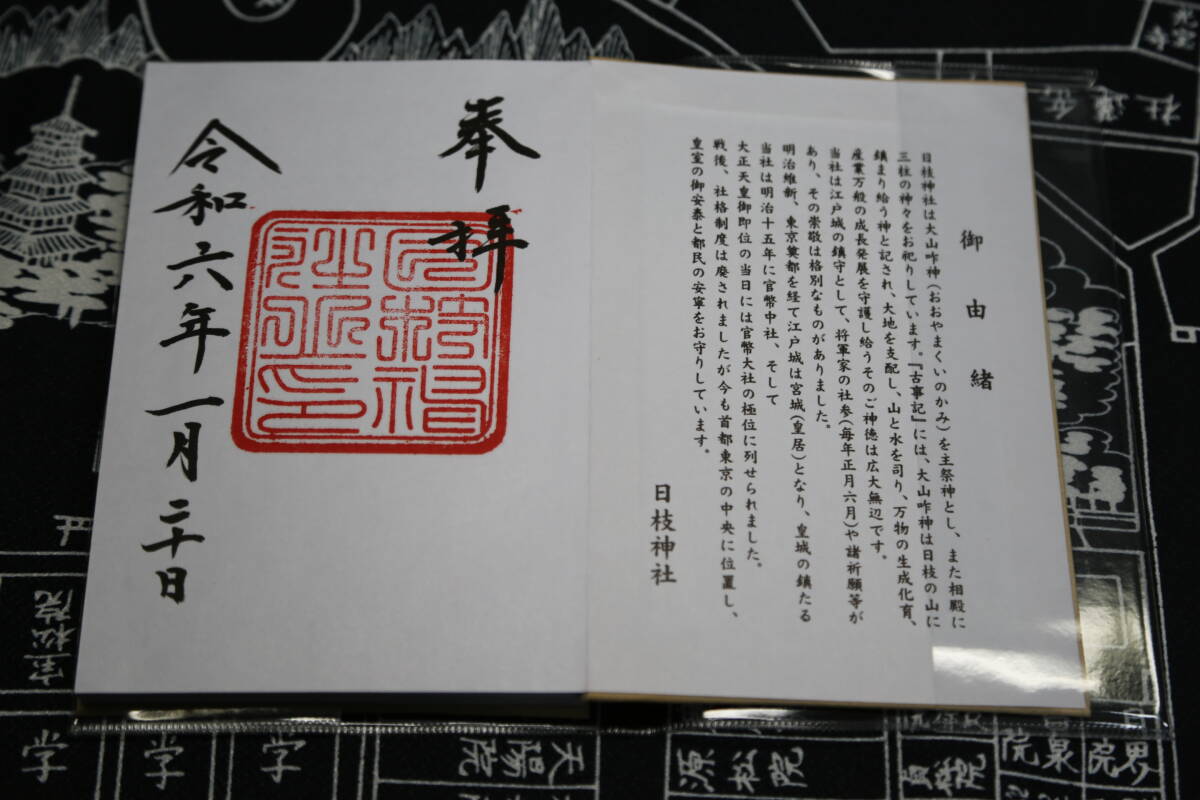 御由緒
日枝神社は大山咋神(おおやまくいのかみ)を主祭神とし、また相殿に
三柱の神々をお祀りしています。『古事記』には、大山咋神は日枝の山に
鎮まり給う神と記され、大地を支配し、山と水を司り、万物の生成化育、
産業万般の成長発展を守護し給うそのご神徳は広大無辺です。
当社は江戸城の鎮守として、将軍家の社参(毎年正月六月)や諸祈願等が
あり、その崇敬は格別なものがありました。
明治維新、東京奠都を経て江戸城は宮城(皇居)となり、皇城の鎮たる
当社は明治十五年に官幣中社、そして
大正天皇御即位の当日には官幣大社の極位に列せられました。
戦後、社格制度は廃されましたが今も首都東京の中央に位置し、
皇室の御安泰と都民の安寧をお守りしています。
日枝神社
奉拝
日枝神社之印
令和六年一月二十日
社
宝松院
学
学
学
天陽院
源松院
院
泉
界
院
社